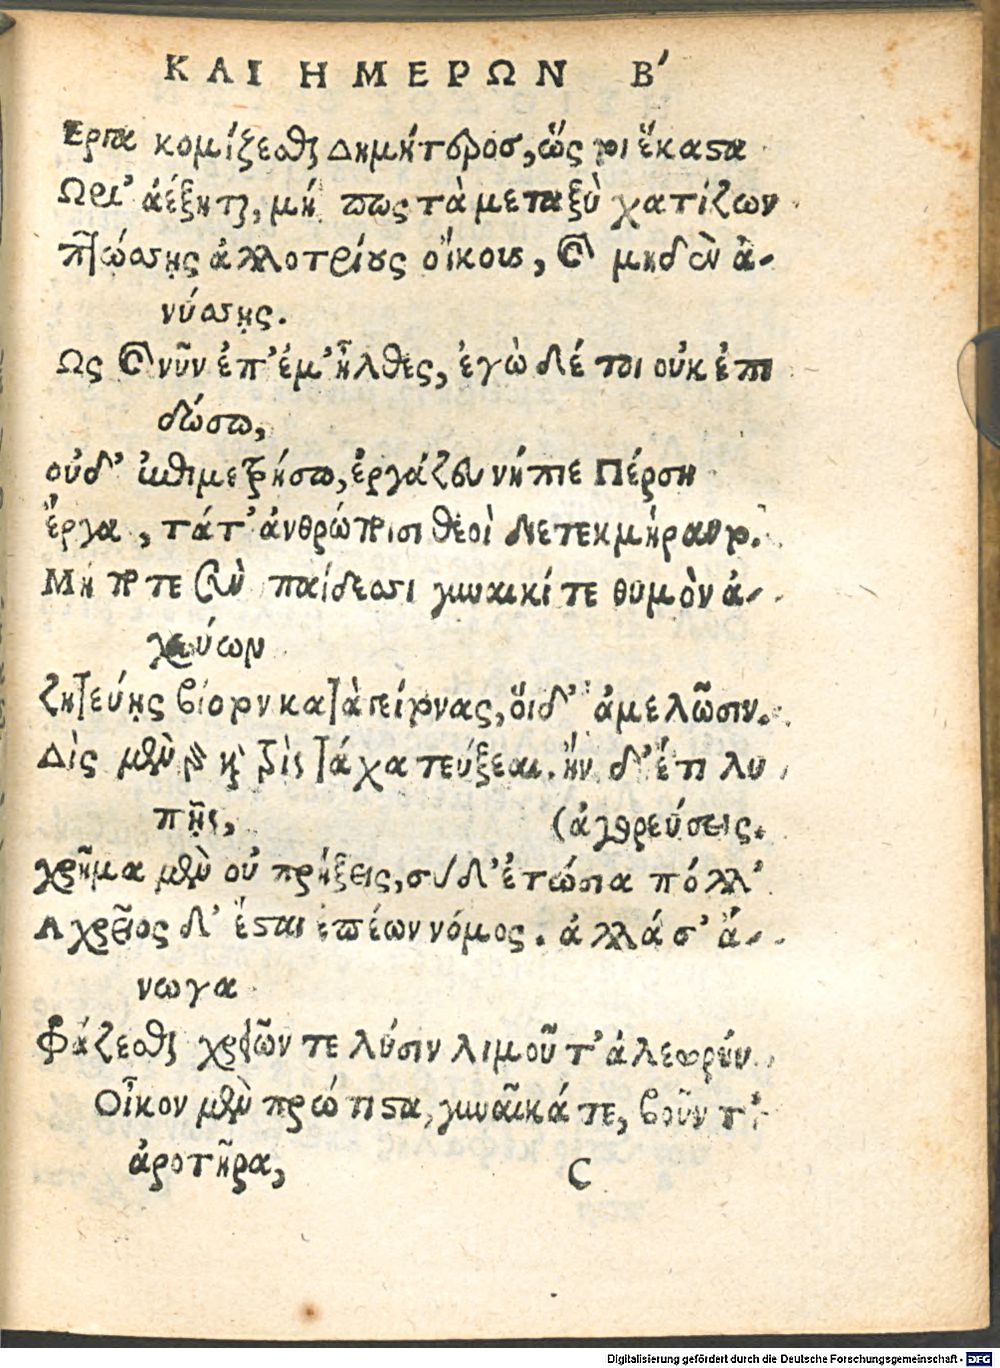 ΚΑΙ ΗΜΕΡΩΝ Β΄
Ἔργα κομίζεσθαι Δημήτερος, ὥς τοι ἕκαστα
Ὥρι' ἀέξηται, μή πως τὰ μεταξὺ χατίζων
πτώσσῃς ἀλλοτρίους οἴκους, καὶ μηδὲν ἀ-
νύσσῃς.
Ὡς καὶ νῦν ἐπ' ἐμ' ἦλθες, ἐγὼ δέ τοι οὐκ ἐπι
δώσω,
οὐδ' ἐπιμετρήσω, ἐργάζευ νήπιε Πέρση
ἔργα, τά τ' ἀνθρώποισι θεοὶ διετεκμήραντο.
Μή ποτε σὺν παίδεσσι γυναικί τε θυμὸν ἀ-
χεύων
ζητεύῃς βίοτον κατὰ γείτονας, οἵδ' ἀμελῶσιν.
Δὶς μὲν γὰρ καὶ τρὶς τάχα τεύξεαι. ἢν δ' ἔτι λυ
πῇς, (ἀγορεύσεις.
χρῆμα μὲν οὐ πρήξεις, σὺ δ' ἐτώσια πόλλ'
Ἀχρεῖος δ' ἔσται ἐπέων νόμος. ἀλλά σ' ἄ-
νωγα
Φράζεσθαι χρειῶν τε λύσιν λιμοῦ τ' ἀλεωρήν.
Οἶκον μὲν πρώτιστα, γυναῖκά τε, βοῦν τ'
ἀροτῆρα,
C